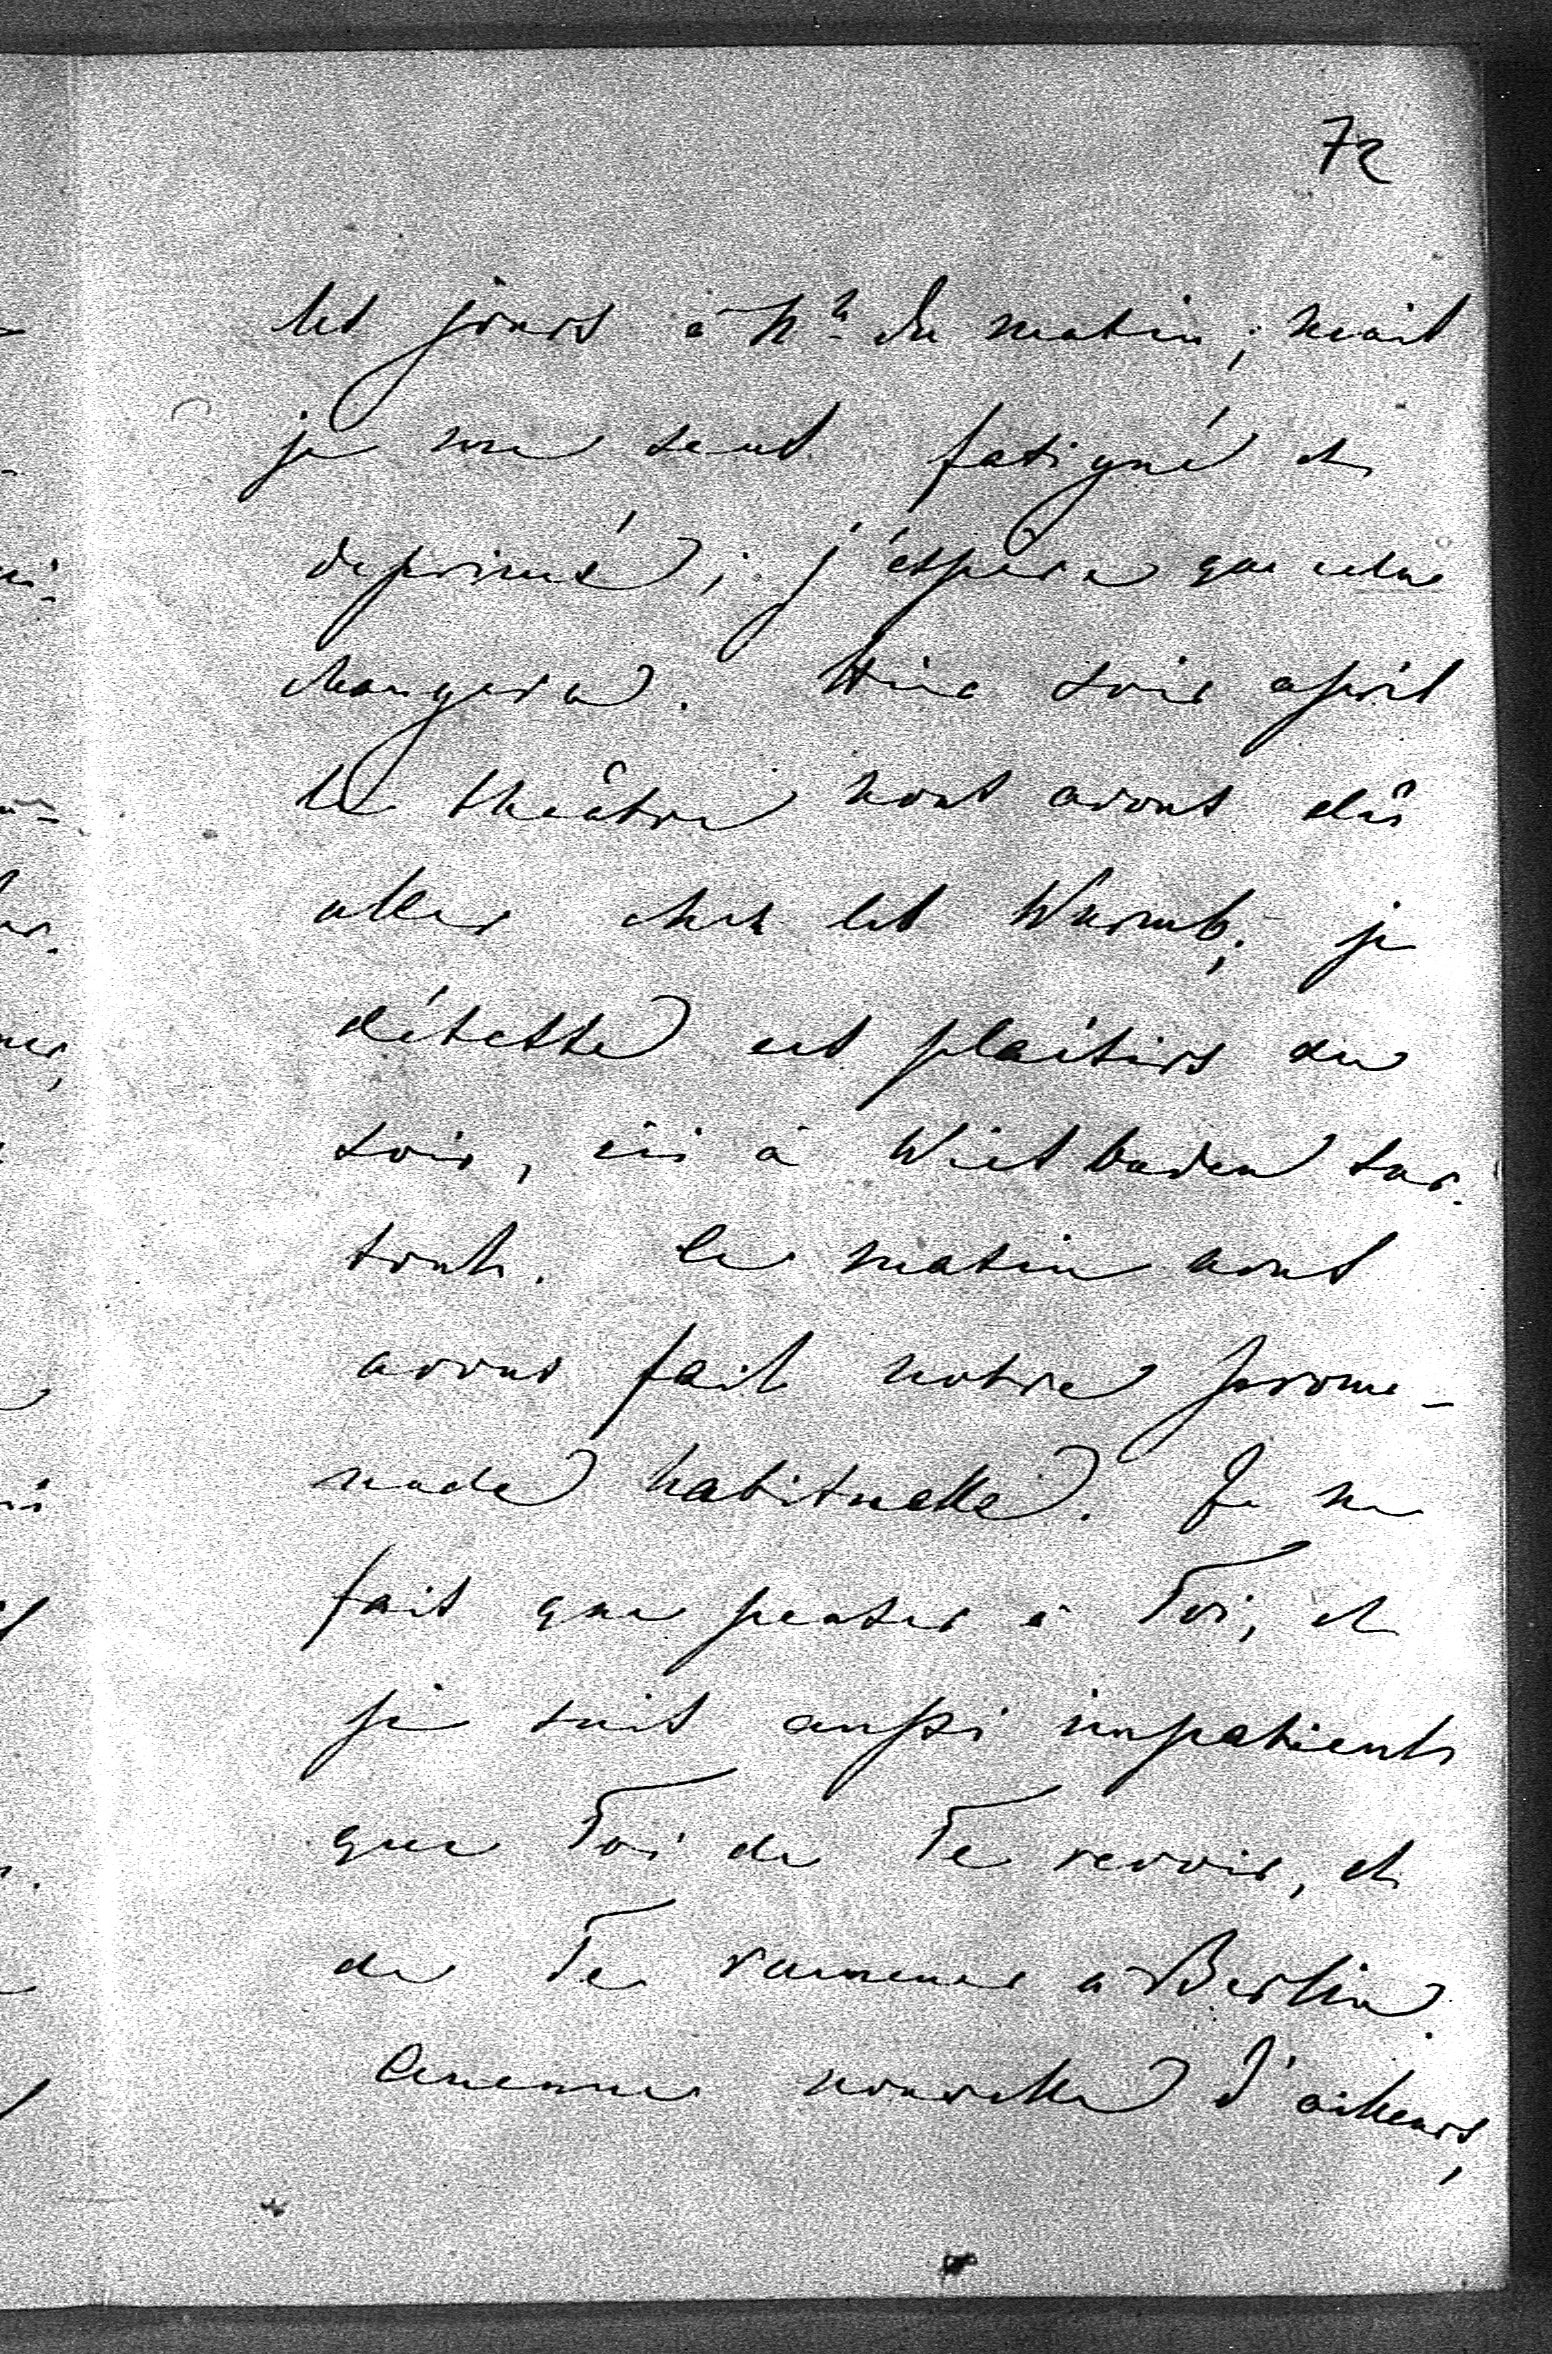 72
les jours à h du matin; mais
je me sens fatigué et
deprimé; j'éspère que cela
changera. Hier soir après
le théâtre nous avons dû
aller chez les Wurmb; je
déteste ces plaisirs du
soir, ici à Wiesbaden sur-
tout. Ce matin nous
avons fait notre prome-
nade habituelle. Je ne
fais que penser à Toi, et
je suis aussi impatient
que Toi de Te revoir, et
de Te ramener à Berlin.
Aucune nouvelle d'ailleurs,